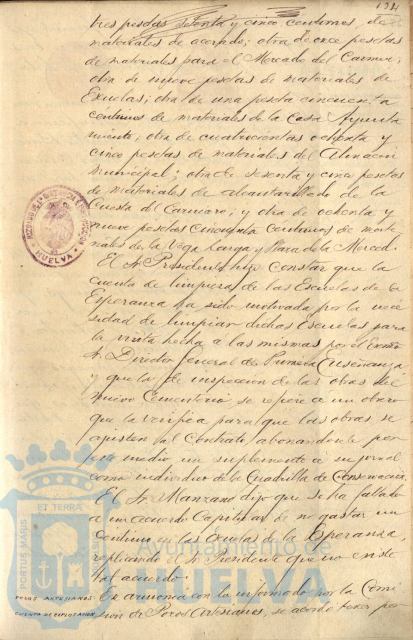 134
tres pesetas setenta y cinco centimos, de
materiales de acerado; otra de once pesetas
de materiales para el Mercado del Carmen;
otra de nueve pesetas de materiales de
Escuelas; otra de una peseta cincuenta
centimos de materiales de la Casa Ayunta
miento; otra de cuatrocientas ochenta y
cinco pesetas de materiales del Almacen
Municipal; otra de sesenta y cinco pesetas
de materiales de alcantarillado de la
Cuesta del Carnicero; y otra de ochenta y
nueve pesetas cincuenta centimos de mate
riales de la Vega Larga y Plaza de la Merced.
El Sr. Presidente hizo constar que la
cuenta de limpieza de las Escuelas de la
Esperanza ha sido motivada por la nece
sidad de limpiar dichas Escuelas para
la visita hecha a las mismas por el Excmo
Sr. Director General de Primera Enseñanza
y que la de inspeccion de las obras del
nuevo Cementerio se refiere a un obrero
que la verifica para que las obras se
ajusten al Contrato, abonandosele por
este medio un suplemento a su jornal
como individuo de la Cuadrilla de Conservacion.
El Sr. Manzano dijo que se ha faltado
a un acuerdo Capitular de no gastar un
centimo en las Escuelas de la Esperanza,
replicando el Sr. Presidente que no existe
tal acuerdo.
POZOS ARTESIANOS. En armonia con lo informado por la Comi
CUENTA DE EXPLOTACION sion de Pozos Artesianos, se acordó
HUELVA
PORTUS MARIS ET TERRÆ
Ayuntamiento de
HUELVA